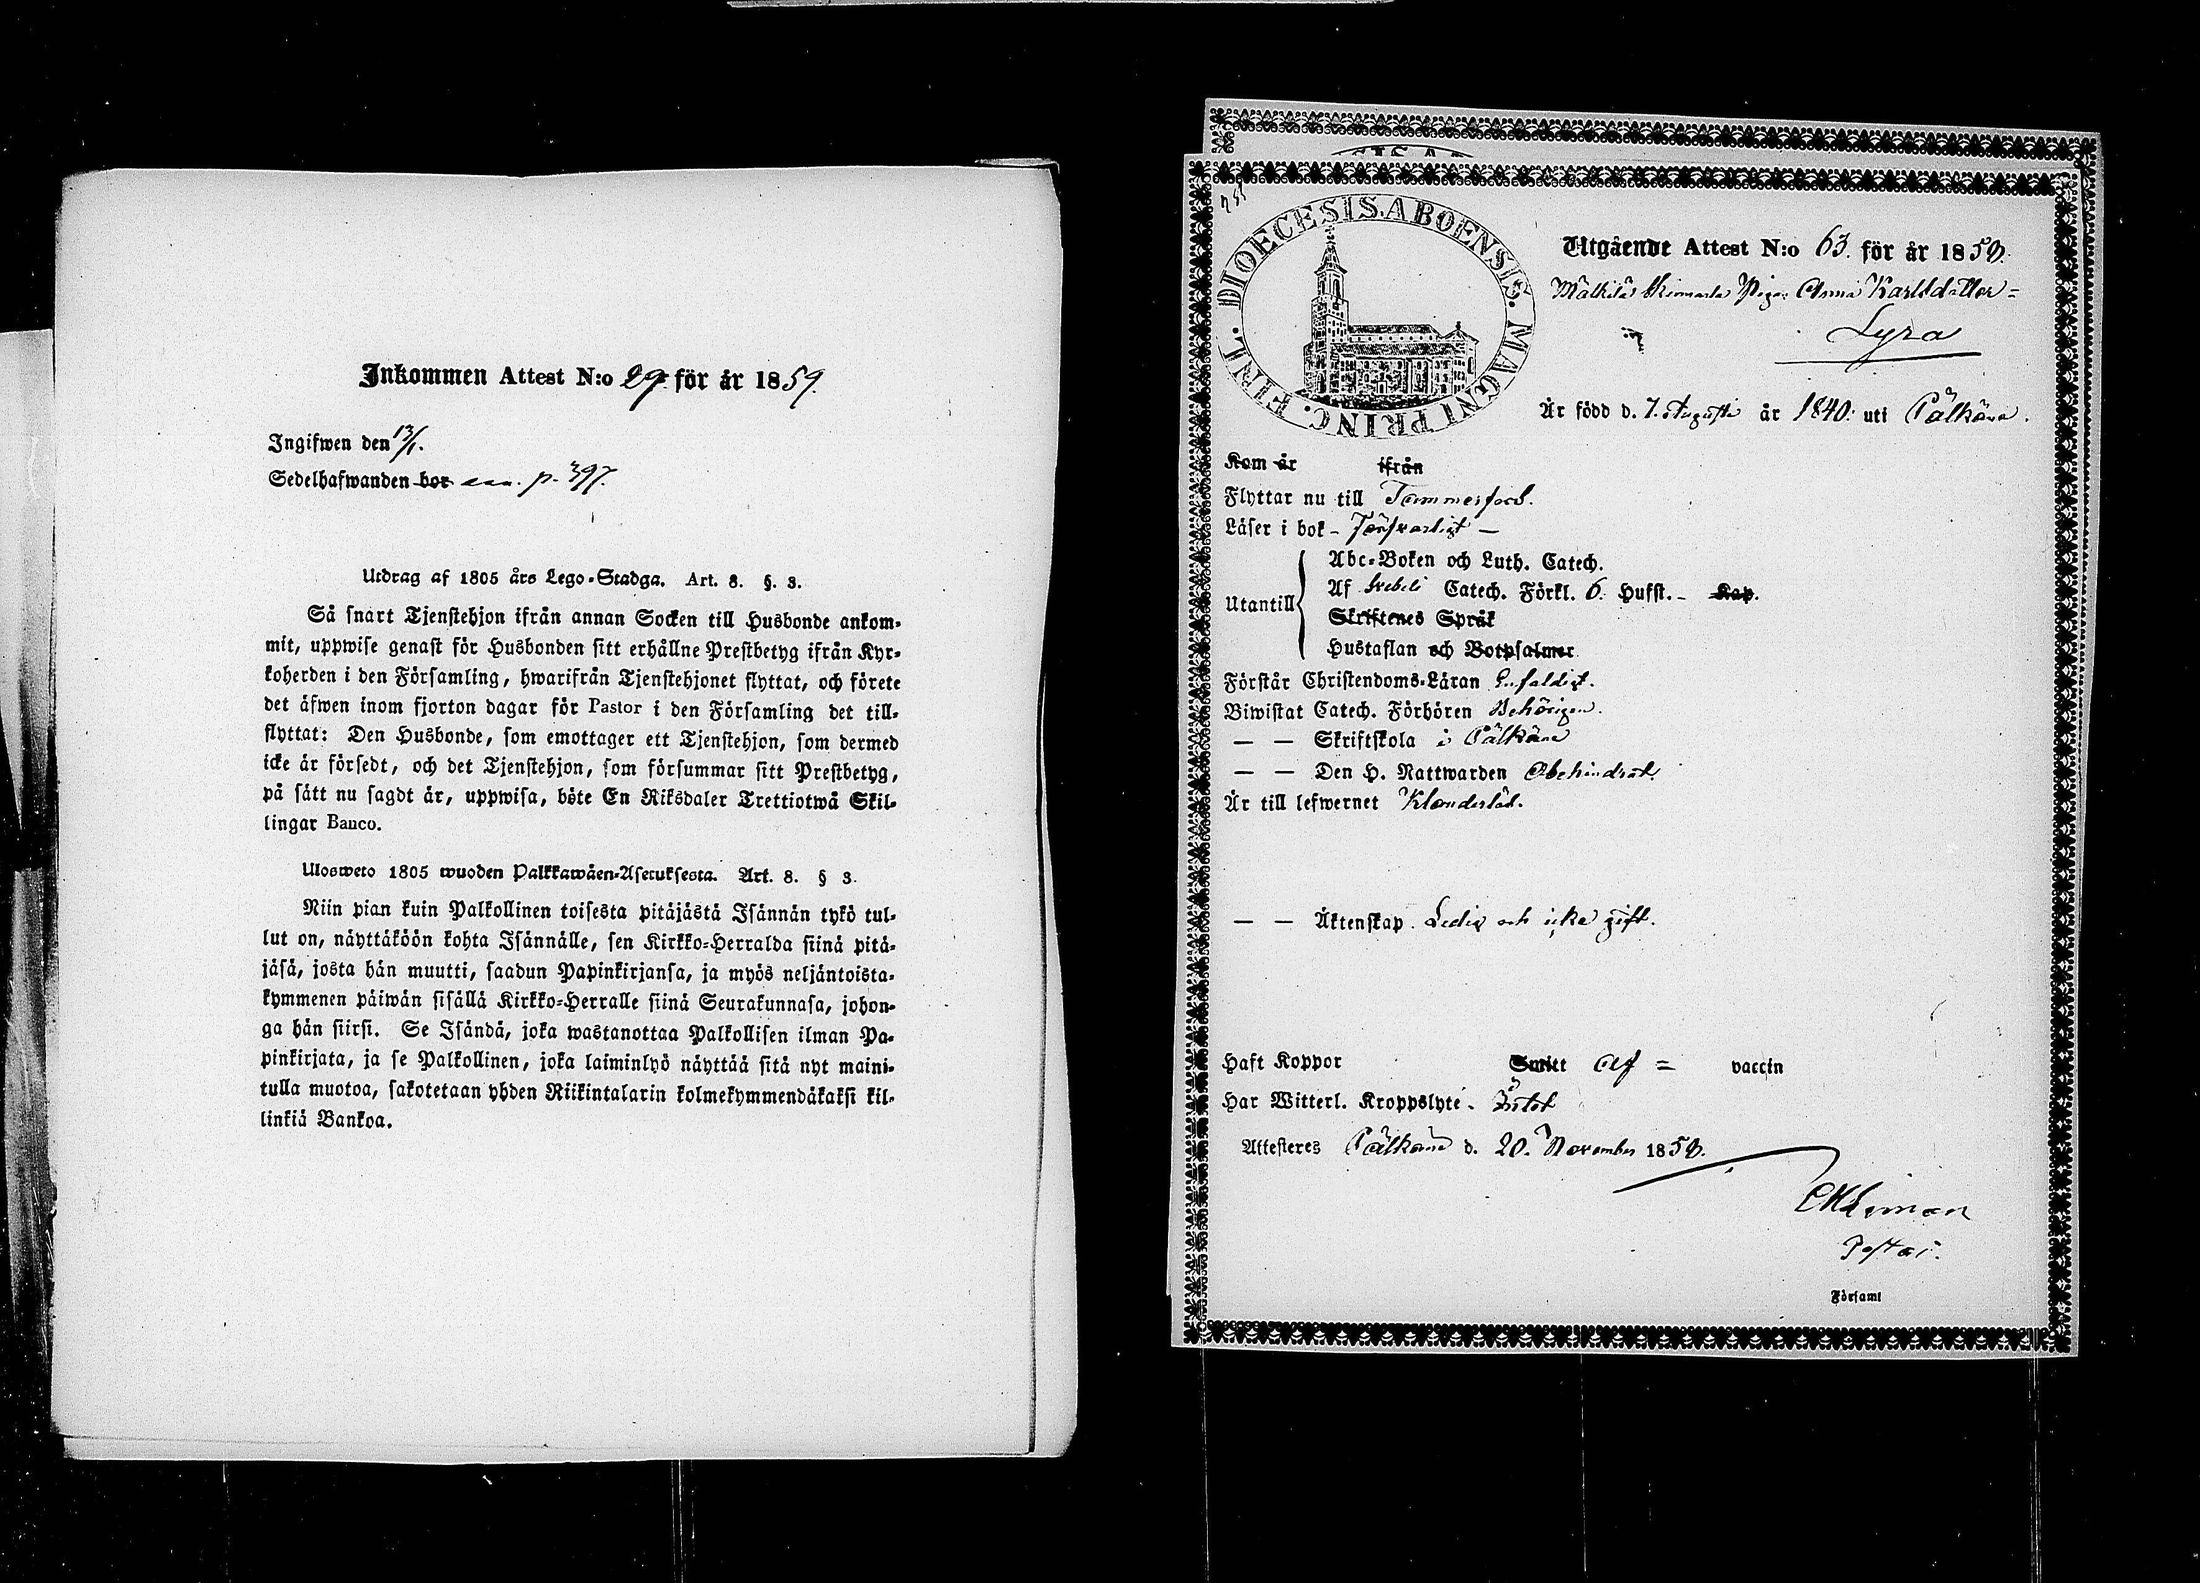 Inkommen Attest N:o 29. för år 1859.
Ingifwen den 13/1.
Sedelhafwanden bor p. 397.
Utdrag af 1805 års Lego-Stadga. Art. 8. §. 3.
Så snart Tjenstehjon ifrån annan Socken till Husbonde ankom-
mit, uppwise genast för Husbonden sitt erhållne Prestbetyg ifrån Kyr-
koherden i den Församling, hwarifrån Tjenstehjonet flyttat, och förete
det äfwen inom fjorton dagar för Pastor i den Församling det till-
flyttat: Den Husbonde, som emottager ett Tjenstehjon, som dermed
icke är försedt, och det Tjenstehjon, som försummar sitt Prestbetyg,
på sätt nu sagdt är, uppwisa, böte En Riksdaler Trettiotwå Skil-
lingar Banco.
Ulosweto 1805 wuoden Palkkawäen-Asetuksesta. Art. 8. § 3.
Niin pian kuin Palkollinen toisesta pitäjästä Isännän tykö tul-
lut on, näyttäköön kohta Isännälle, sen Kirkko-Herralda siinä pitä-
jäsä, josta hän muutti, saadun Papinkirjansa, ja myös neljäntoista-
kymmenen päiwän sisällä Kirkko-Herralle siinä Seurakunnasa, johon-
ga hän siirsi. Se Isändä, joka wastanottaa Palkollisen ilman Pa-
pinkirjata, ja se Palkollinen, joka laiminlyö näyttää sitä nyt maini-
tulla muotoa, sakotetaan yhden Riikintalarin kolmekymmendäkaksi kil-
linkiä Bankoa.
DIOECESIS. ABOENSIS. MAGNI PRINC. FINL.
Utgående Attest N:o 63. för år 1858.
Mälkilä Pigan Anna Karlsdotter =
Lyra
Är född d. 7. Augusti år 1840. uti Pälkäne.
Kom år ifrån
Flyttar nu till Tammerfors.
Läser i bok - Försvarligt -
Utantill
Abc-Boken och Luth. Catech.
Af Svebeli Catech. Förkl. 6. Hufst. - Kap.
Skriftenes Språk
Hustaflan och Botpsalmer
Förstår Christendoms-Läran Enfaldigt.
Biwistat Catech. Förhören Behörigen.
— — Skriftskola i Pälkäne
— — Den H. Nattwarden Obehindrad.
Är till lefwernet Klanderlös.
— — Äktenskap Ledig och icke gift.
Haft Koppor Smitt af = vaccin
Har Witterl. Kroppslyte - Intet
Attesteres Pälkäne d. 20. November 1858.
Pastor.
Församl